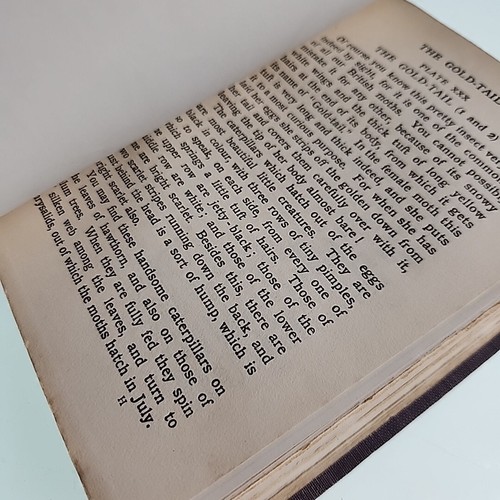 THE GOLD-TAIL
PLATE XXX
THE GOLD-TAIL (1 and
Of course you know this pretty insect
indeed by sight, for it is one of the
of all our British moths. You cannot
mistake it for any other, because of its snowy
white wings and body, and the tuft of long yellow
hairs at the end of its body, from which it gets
the name of "Gold-tail." In the female moth this
tuft is very long and thick indeed, and she puts
it to a most curious purpose. For when she has
laid her eggs she strips off the golden down from
her tail and covers them carefully over with it,
leaving the tip of her body almost bare!
The caterpillars which hatch out of the eggs
are most beautiful little creatures. They are
black in colour, with three rows of tiny pimples,
so to speak, on each side, from every one of
which springs a little tuft of hairs. Those of
the upper row are jetty black, those of the
middle row are white; and those of the lower
are bright scarlet. Besides this, there are
two scarlet stripes running down the back, and
just behind the head is a sort of hump, which is
bright scarlet also.
You may find these handsome caterpillars on
the leaves of hawthorn, and also on those of
plum trees. When they are fully fed they spin
silken web among the leaves, and turn to
chrysalids, out of which the moths hatch in July.
H